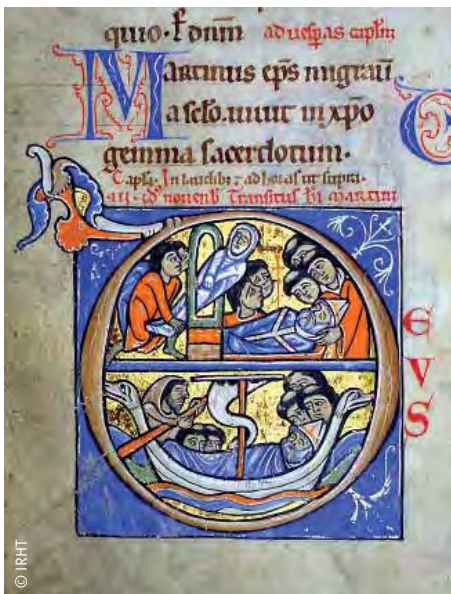 quio· ł dñm̃ ad uesp̃as capłm
Martinus ep̃s migrauit
a sc̃lo. uiuit in xp̃o
gemma sacerdotum·
Capła. In laudib; ad horas ut supra.
nouenb̃ Transitus bĩ martini
EVS
© IRHT